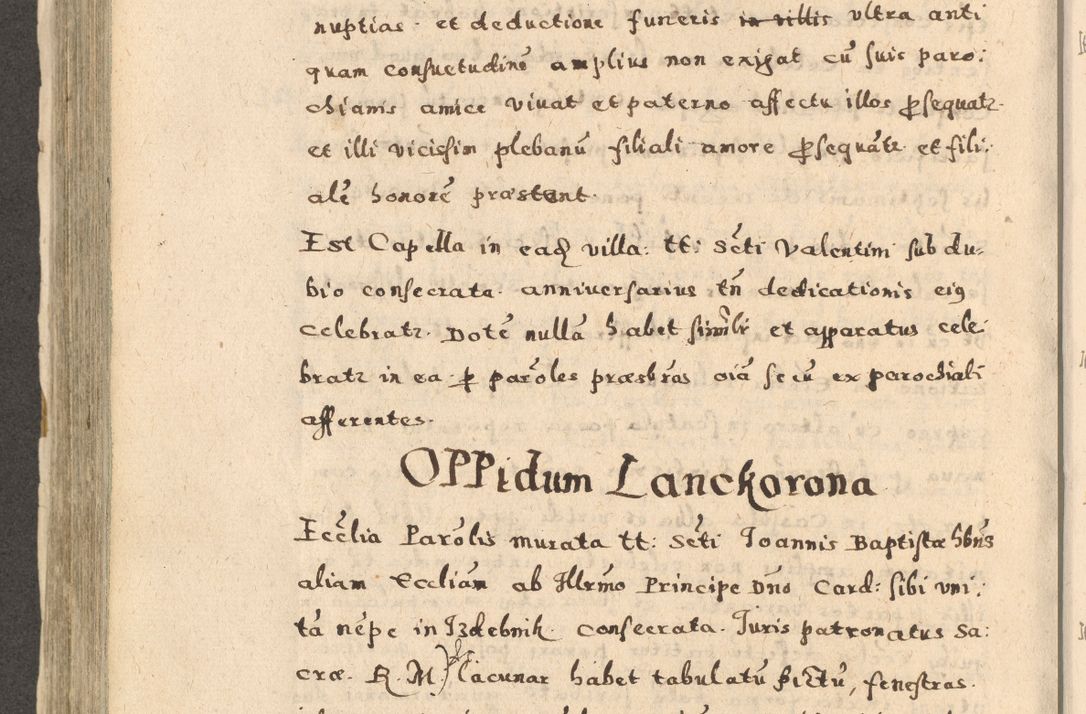 nuptias et deductione funeris in villis vltra anti
quam consuetudinē amplius non exigat cū suis paro:
chianis amice viuat et paterno affectu illos ꝓsequatr.
et illi vicissim plebanū filiali amore ꝓsequātr et fili:
alē honorē præstent.
Est Capella in eadȝ villa: tt: Scti Valentini sub du-
bio consecrata. anniuersarius tn̄ dedicationis eiꝯ
celebratr. Dotē nullā habet simlr et apparatus cele
bratr in ea ꝑ parōles præsbr̄os oīa secū ex parochiali
afferentes.
OPPidum Lanckorona
Eccłia Parōlis murata tt: Scti Joannis Baptistæ hbn̄s
aliam Eccliam ab Illrm̄o Principe Dn̄o Card: sibi vni:
tā nēpe in Izdebnik consecrata. Juris patronatus Sa:
cræ. R. M. lacunar habet tabulatū pictū, fenestras